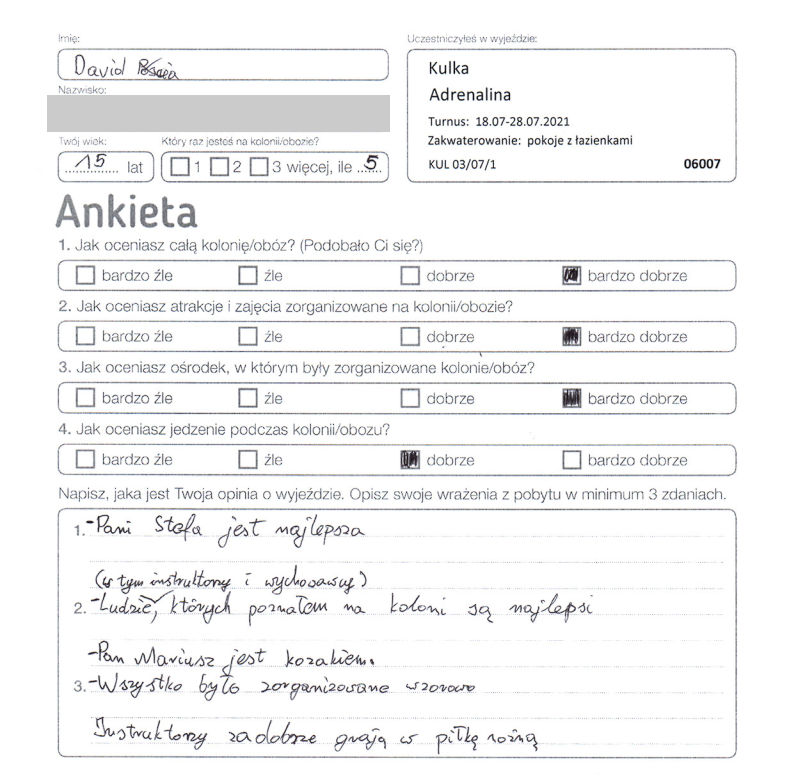 Imię:
David
Nazwisko:
Twój wiek:
15 lat
Który raz jesteś na kolonii/obozie?
1 2 3 więcej, ile 5
Uczestniczyłeś w wyjeździe:
Kulka
Adrenalina
Turnus: 18.07-28.07.2021
Zakwaterowanie: pokoje z łazienkami
KUL 03/07/1 06007
Ankieta
1. Jak oceniasz całą kolonię/obóz? (Podobało Ci się?)
bardzo źle źle dobrze bardzo dobrze
2. Jak oceniasz atrakcje i zajęcia zorganizowane na kolonii/obozie?
bardzo źle źle dobrze bardzo dobrze
3. Jak oceniasz ośrodek, w którym były zorganizowane kolonie/obóz?
bardzo źle źle dobrze bardzo dobrze
4. Jak oceniasz jedzenie podczas kolonii/obozu?
bardzo źle źle dobrze bardzo dobrze
Napisz, jaka jest Twoja opinia o wyjeździe. Opisz swoje wrażenia z pobytu w minimum 3 zdaniach.
1. -Pani Stefa jest najlepsza
(w tym instruktorzy i wychowawcy)
2. -Ludzie, których poznałem na koloni są najlepsi
-Pan Mariusz jest kozakiem.
3. -Wszystko było zorganizowane wzorowo
Instruktorzy zadobrze grają w piłkę nożną